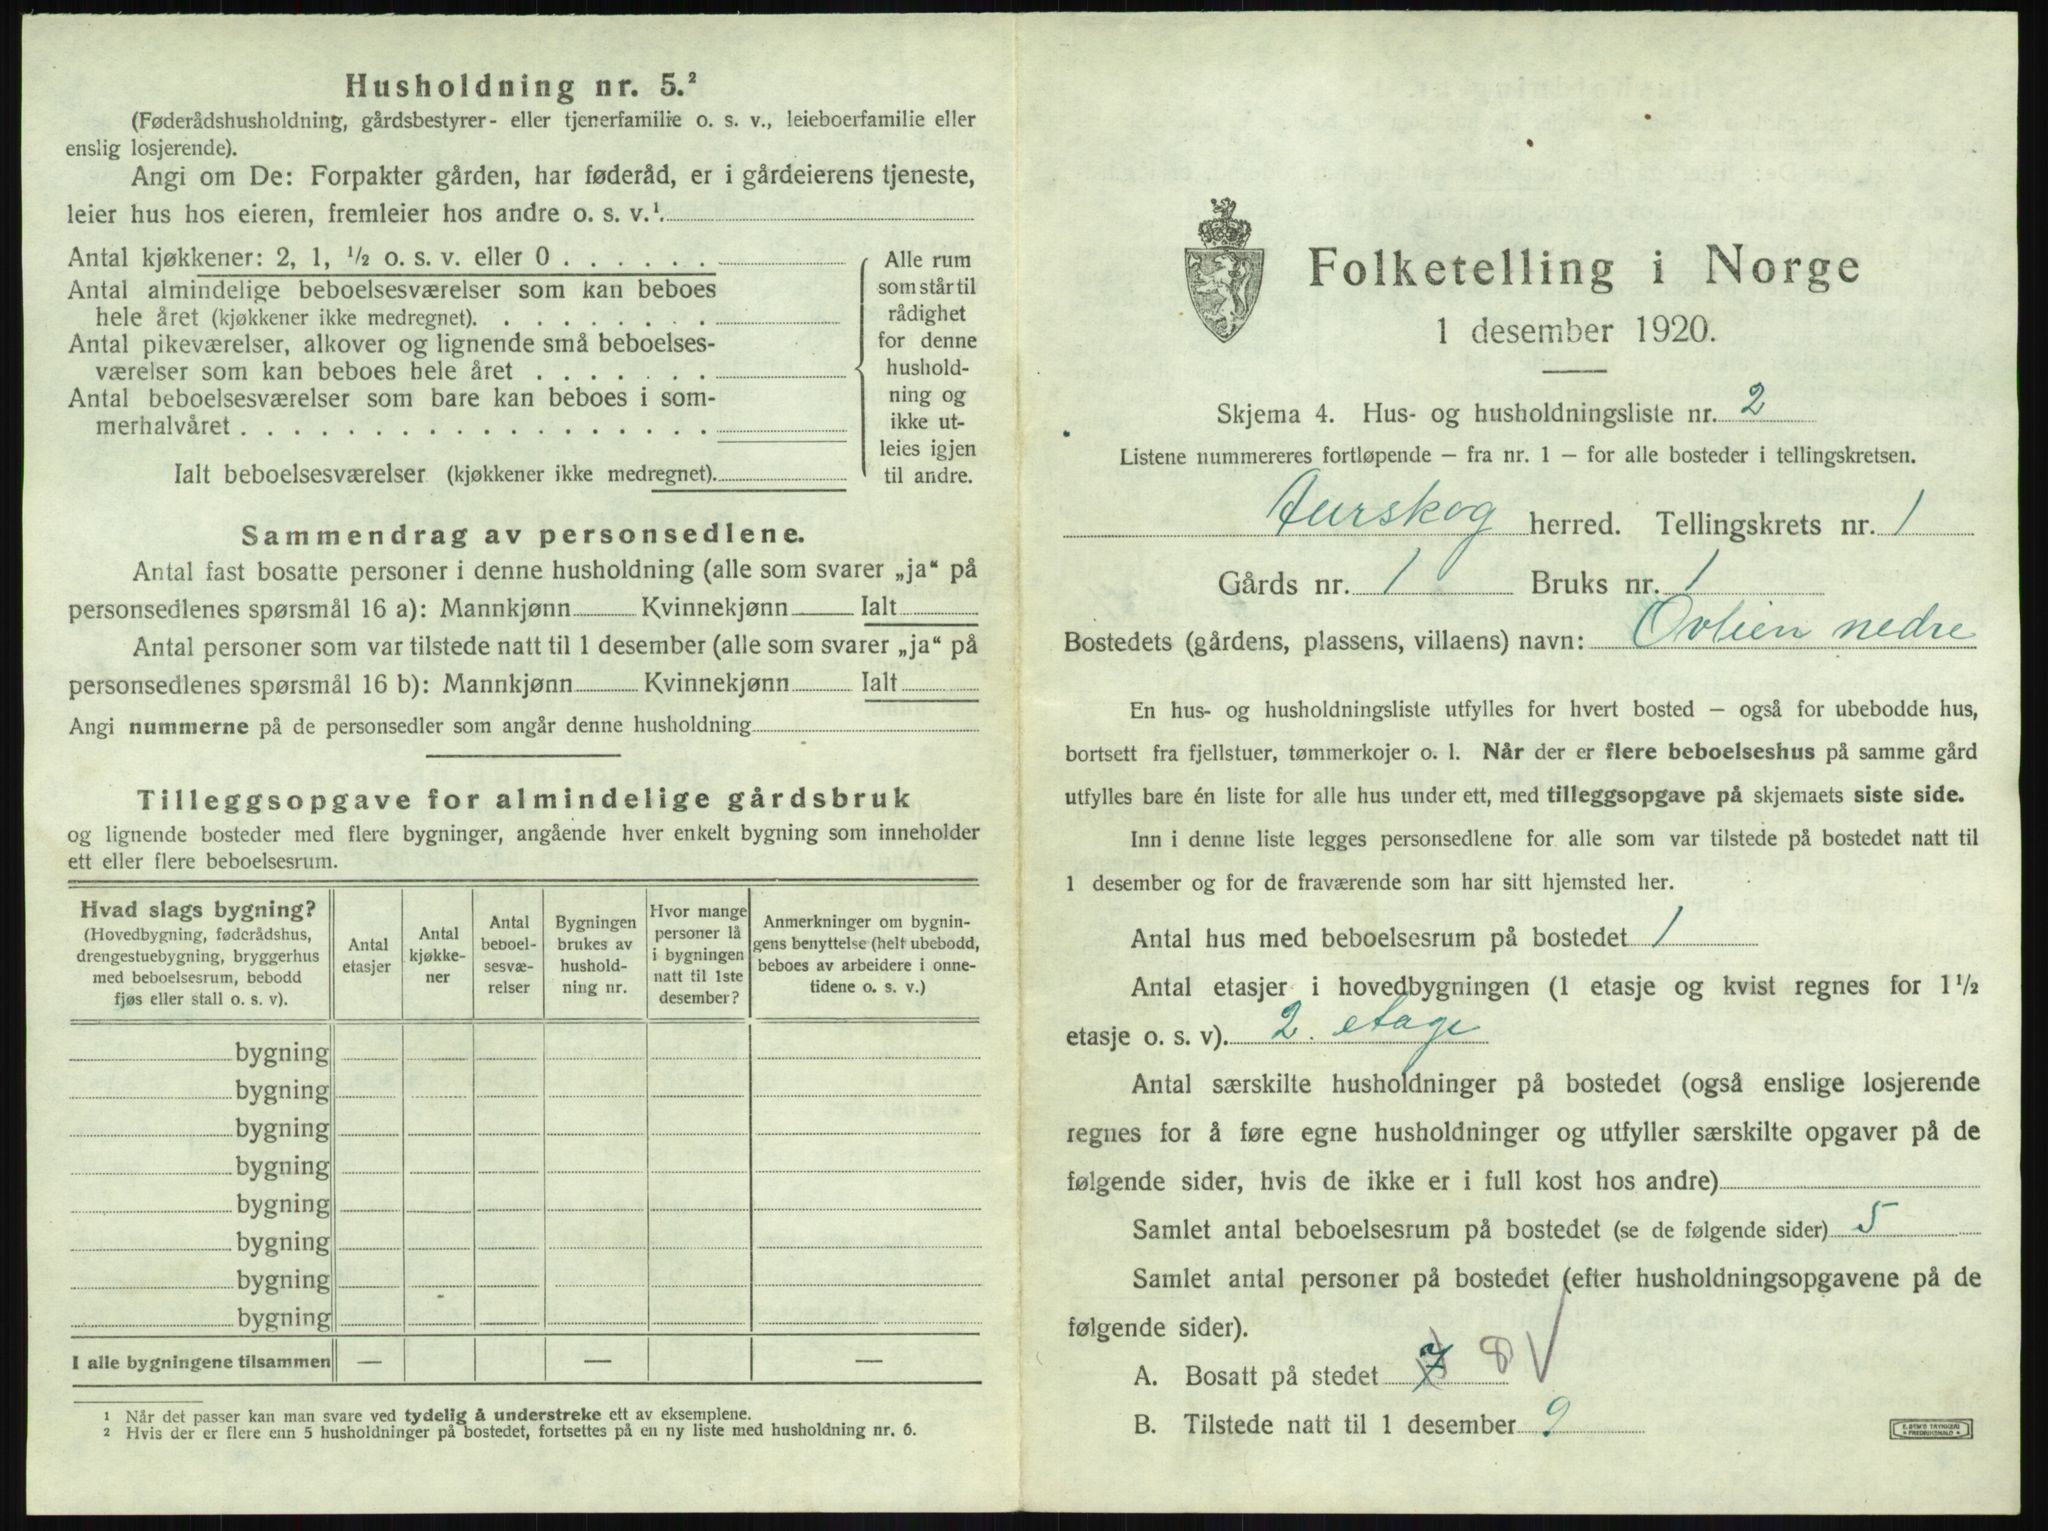 Husholdning nr. 5.²
(Føderådshusholdning, gårdsbestyrer- eller tjenerfamilie o. s. v., leieboerfamilie eller
enslig losjerende).
Angi om De: Forpakter gården, har føderåd, er i gårdeierens tjeneste,
leier hus hos eieren, fremleier hos andre o. s. v.¹.
Antal kjøkkener: 2, 1, ½ o. s. v. eller 0 . . . . . .
Antal almindelige beboelsesværelser som kan beboes
hele året (kjøkkener ikke medregnet). . . . . . . . .
Antal pikeværelser, alkover og lignende små beboelses-
værelser som kan beboes hele året . . . . . . .
Antal beboelsesværelser som bare kan beboes i som-
merhalvåret . . . . . . . . . . . . . . . . . .
Ialt beboelsesværelser (kjøkkener ikke medregnet).
Alle rum
som står til
rådighet
for denne
hushold-
ning og
ikke ut-
leies igjen
til andre.
Sammendrag av personsedlene.
Antal fast bosatte personer i denne husholdning (alle som svarer „ja“ på
personsedlenes spørsmål 16 a): Mannkjønn Kvinnekjønn Ialt
Antal personer som var tilstede natt til 1 desember (alle som svarer „ja“ på
personsedlenes spørsmål 16 b): Mannkjønn Kvinnekjønn Ialt
Angi nummerne på de personsedler som angår denne husholdning
Tilleggsopgave for almindelige gårdsbruk
og lignende bosteder med flere bygninger, angående hver enkelt bygning som inneholder
ett eller flere beboelsesrum.
Hvad slags bygning?
(Hovedbygning, føderådshus,
drengestuebygning, bryggerhus
med beboelsesrum, bebodd
fjøs eller stall o. s. v).
Antal
etasjer
Antal
kjøkke-
ner
Antal
beboel-
sesvæ-
relser
Bygningen
brukes av
hushold-
ning nr.
Hvor mange
personer lå
i bygningen
natt til 1ste
desember?
Anmerkninger om bygnin-
gens benyttelse (helt ubebodd,
beboes av arbeidere i onne-
tidene o. s. v.)
bygning
bygning
bygning
bygning
bygning
bygning
bygning
bygning
I alle bygningene tilsammen — — —
¹ Når det passer kan man svare ved tydelig å understreke ett av eksemplene.
² Hvis der er flere enn 5 husholdninger på bostedet, fortsettes på en ny liste med husholdning nr. 6.
Folketelling i Norge
1 desember 1920.
Skjema 4. Hus- og husholdningsliste nr. 2
Listene nummereres fortløpende – fra nr. 1 – for alle bosteder i tellingskretsen.
Aurskog herred. Tellingskrets nr. 1
Gårds nr. 1 Bruks nr. 1
Bostedets (gårdens, plassens, villaens) navn: Ovlien nedre
En hus- og husholdningsliste utfylles for hvert bosted – også for ubebodde hus,
bortsett fra fjellstuer, tømmerkojer o. l. Når der er flere beboelseshus på samme gård
utfylles bare én liste for alle hus under ett, med tilleggsopgave på skjemaets siste side.
Inn i denne liste legges personsedlene for alle som var tilstede på bostedet natt til
1 desember og for de fraværende som har sitt hjemsted her.
Antal hus med beboelsesrum på bostedet 1
Antal etasjer i hovedbygningen (1 etasje og kvist regnes for 1½
etasje o. s. v). 2. etage
Antal særskilte husholdninger på bostedet (også enslige losjerende
regnes for å føre egne husholdninger og utfyller særskilte opgaver på de
følgende sider, hvis de ikke er i full kost hos andre)
Samlet antal beboelsesrum på bostedet (se de følgende sider) 5
Samlet antal personer på bostedet (efter husholdningsopgavene på de
følgende sider).
A. Bosatt på stedet 7 8 V
B. Tilstede natt til 1 desember 9